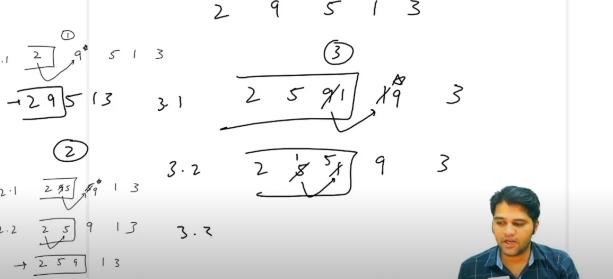 2 9 5 1 3
①
.1 2 9* 5 1 3
→ 2 9 5 1 3
②
2.1 2 9 5 5 9* 1 3
2.2 2 5 9 1 3
→ 2 5 9 1 3
③
3.1 2 5 9 1 1 9 3
3.2 2 5 1 1 5 9 3
3.3